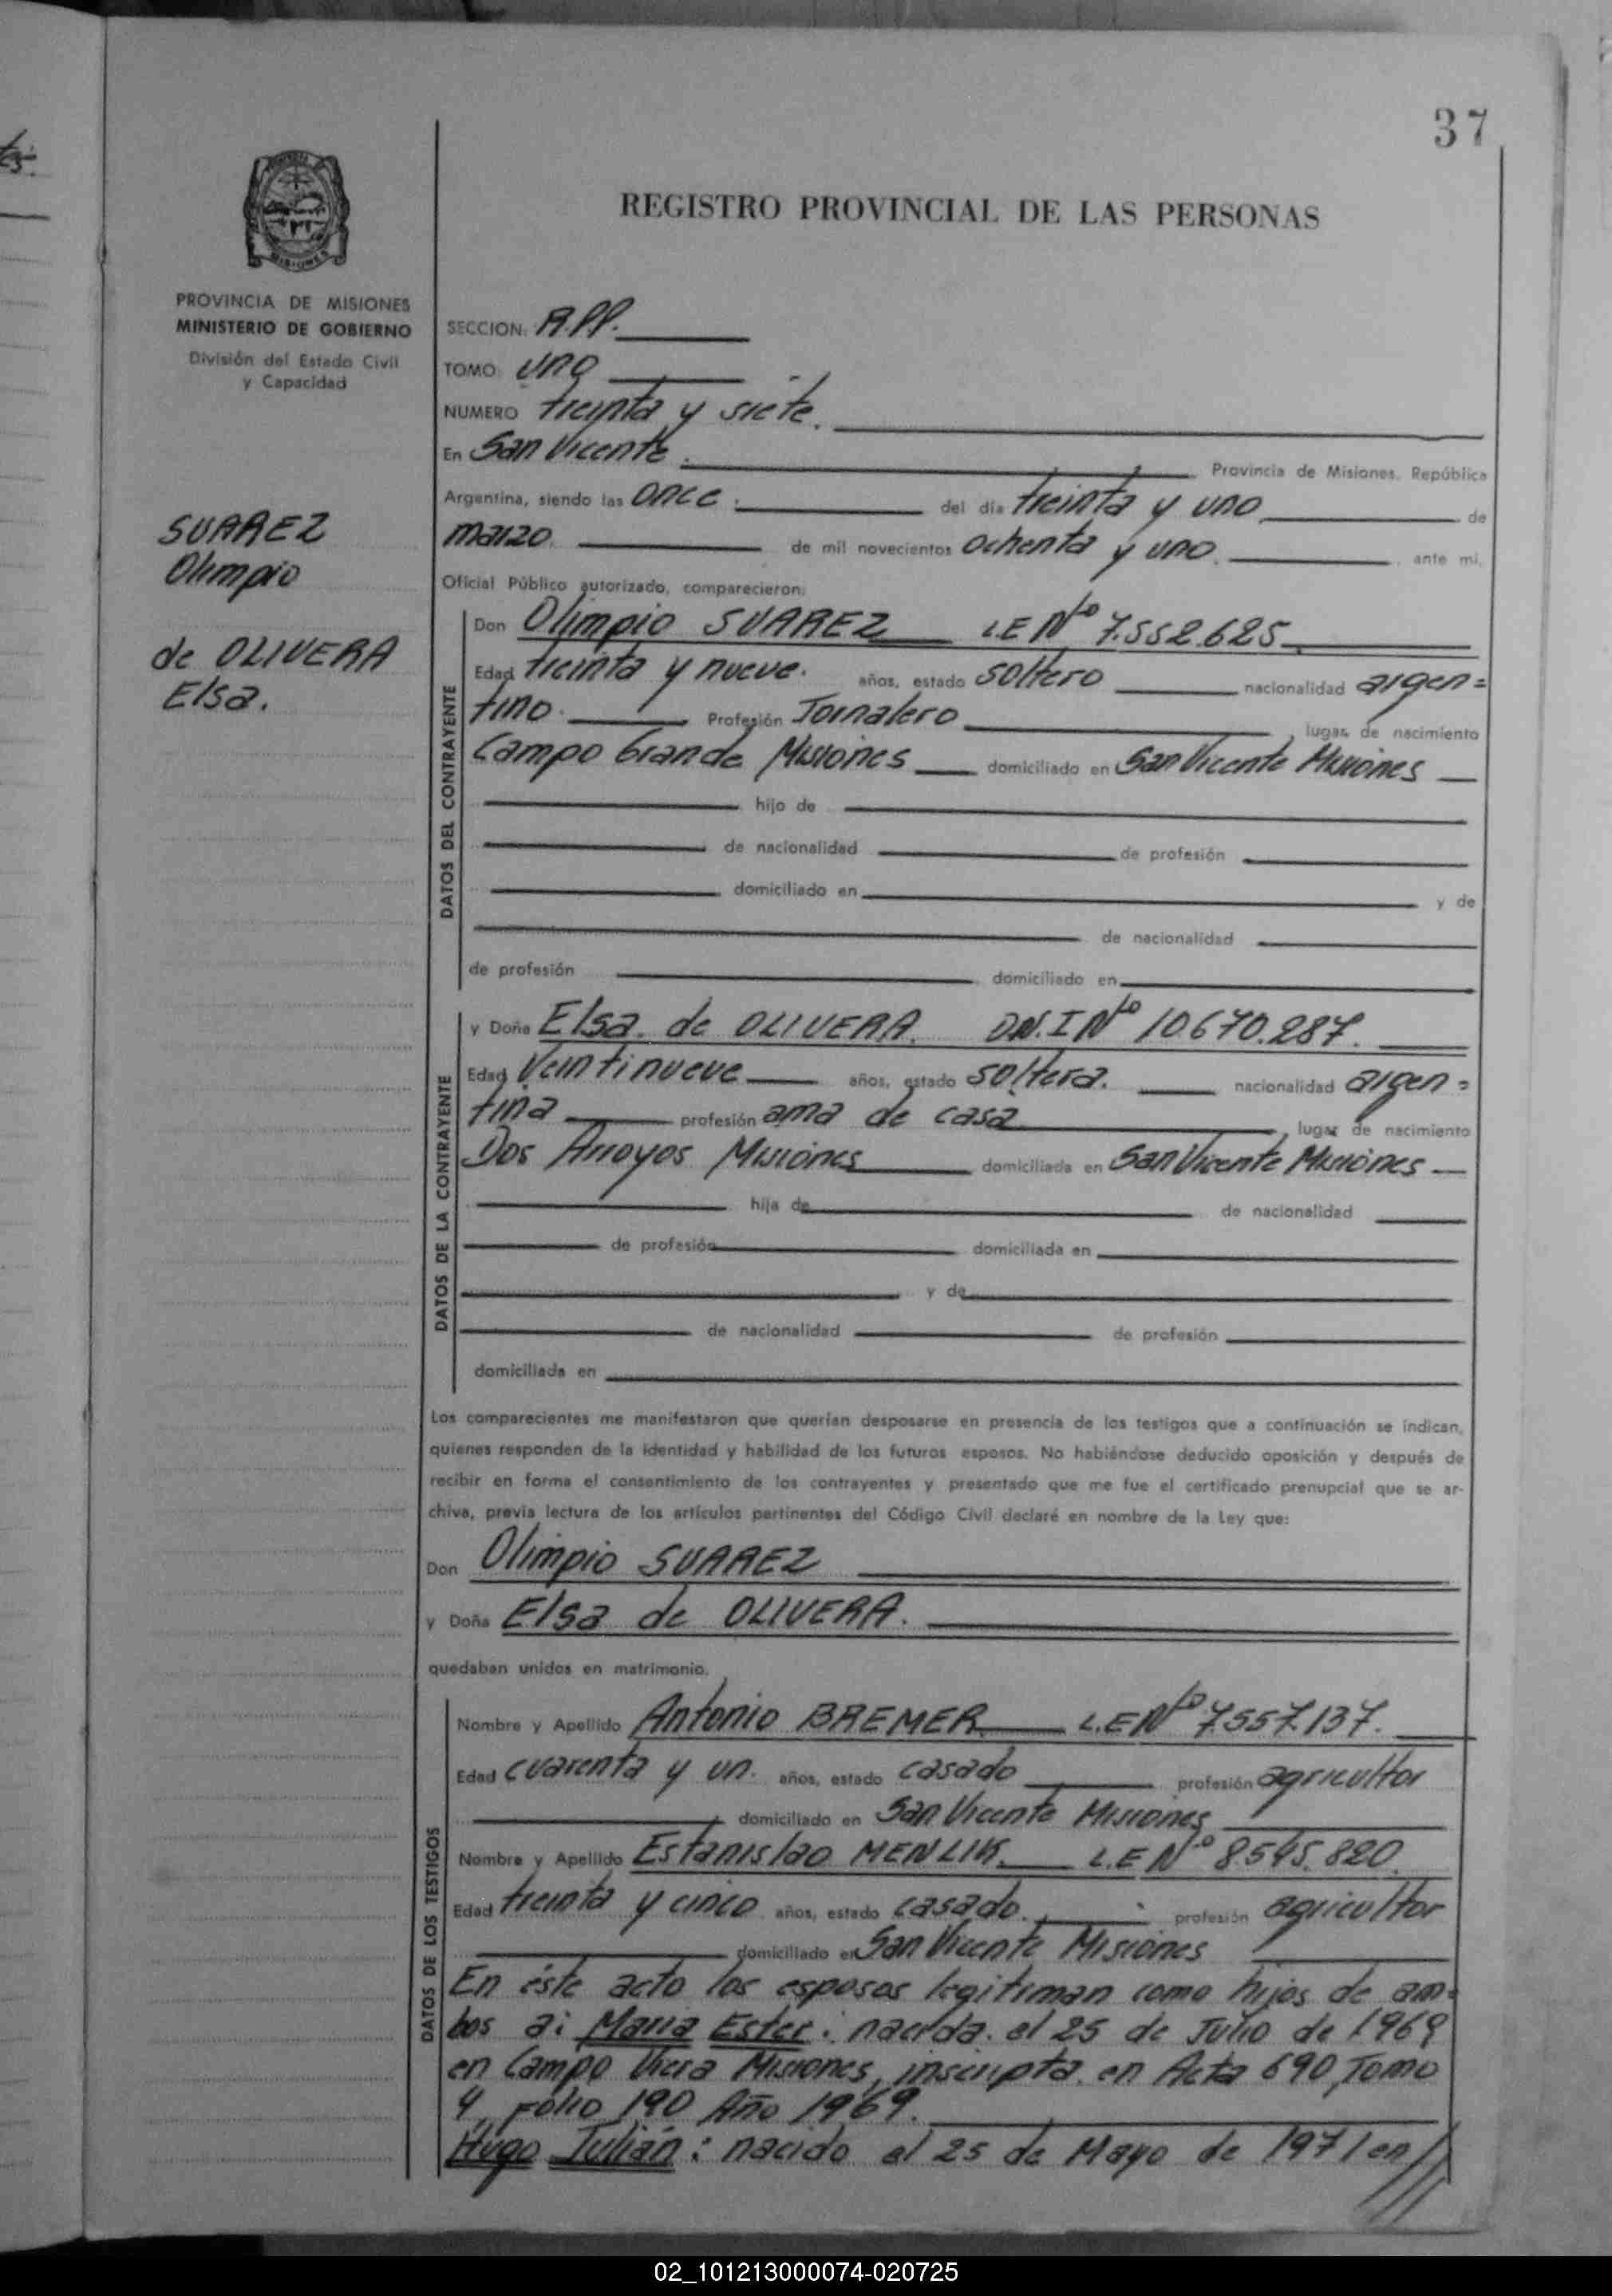 37
REGISTRO PROVINCIAL DE LAS PERSONAS
MISIONES
PROVINCIA DE MISIONES
MINISTERIO DE GOBIERNO
División del Estado Civil
y Capacidad
SUAREZ
Olimpio
de OLIVERA
Elsa.
SECCION: A.PP.
TOMO: uno
NUMERO treinta y siete.
En San Vicente. Provincia de Misiones, República
Argentina, siendo las once. del día treinta y uno de
marzo. de mil novecientos ochenta y uno. ante mi,
Oficial Público autorizado, comparecieron:
DATOS DEL CONTRAYENTE
Don Olimpio SUAREZ L.E Nº 7.552.625.
Edad treinta y nueve. años, estado soltero nacionalidad argen=
tino. Profesión Jornalero, lugar de nacimiento
Campo Grande Misiones domiciliado en San Vicente Misiones
hijo de
de nacionalidad de profesión
domiciliado en y de
de nacionalidad
de profesión domiciliado en
DATOS DE LA CONTRAYENTE
y Doña Elsa de OLIVERA. D.N.I Nº 10.670.287.
Edad Veintinueve años, estado soltera. nacionalidad argen=
tina profesión ama de casa, lugar de nacimiento
Dos Arroyos Misiones domiciliada en San Vicente Misiones
hija de de nacionalidad
de profesión domiciliada en
y de
de nacionalidad de profesión
domiciliada en
Los comparecientes me manifestaron que querían desposarse en presencia de los testigos que a continuación se indican,
quienes responden de la identidad y habilidad de los futuros esposos. No habiéndose deducido oposición y después de
recibir en forma el consentimiento de los contrayentes y presentado que me fue el certificado prenupcial que se ar-
chiva, previa lectura de los artículos pertinentes del Código Civil declaré en nombre de la Ley que:
Don Olimpio SUAREZ
y Doña Elsa de OLIVERA.
quedaban unidos en matrimonio.
DATOS DE LOS TESTIGOS
Nombre y Apellido Antonio BREMER L.E Nº 7.557.137.
Edad cuarenta y un. años, estado casado profesión agricultor
domiciliado en San Vicente Misiones
Nombre y Apellido Estanislao MENLIK. L.E Nº 8.545.820.
Edad treinta y cinco años, estado casado. profesión agricultor
domiciliado en San Vicente Misiones
En éste acto los esposos legitiman como hijos de am=
bos a: Maria Ester: nacida el 25 de Julio de 1969
en Campo Viera Misiones, inscripta en Acta 690, Tomo
4, Folio 190 Año 1969.
Hugo Julián: nacido el 25 de Mayo de 1971 en //
02_101213000074-020725